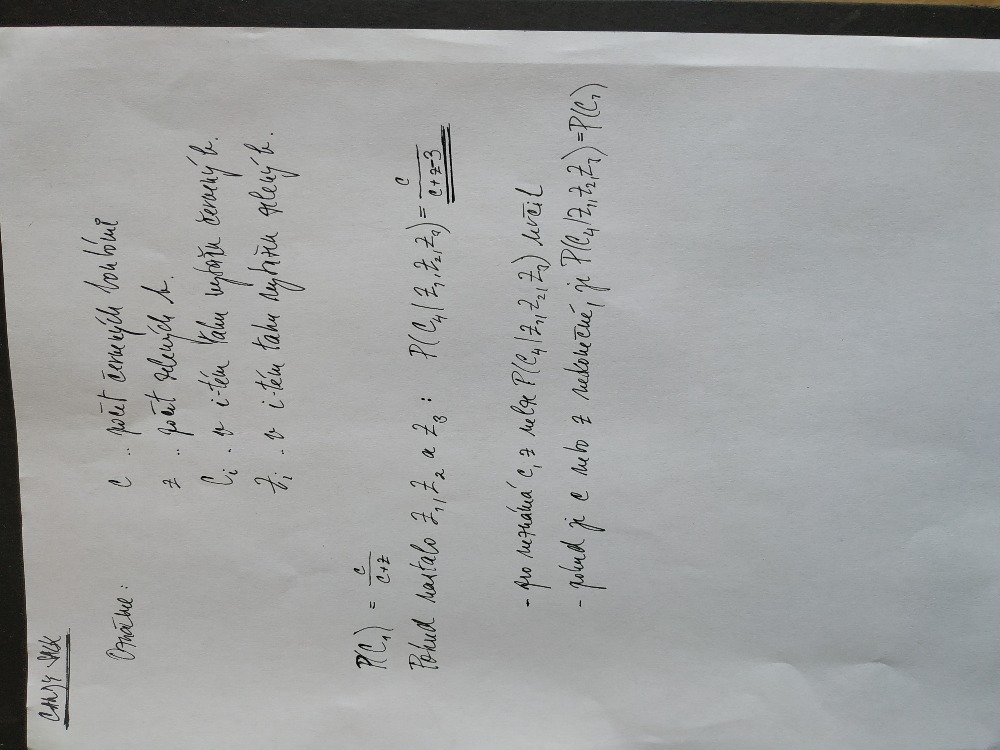 CANDY SACK
Označme: c .. počet červených bonbónů
z .. počet zelených b.
Cᵢ .. v i-tém tahu vytažen červený b.
Zᵢ .. v i-tém tahu vytažen zelený b.
P(C₁) = c/(c+z)
Pokud nastalo Z₁, Z₂ a Z₃: P(C₄|Z₁,Z₂,Z₃) = c/(c+z-3)
- pro neznámá c, z nelze P(C₄|Z₁,Z₂,Z₃) určit
- pokud je c nebo z nekonečné, je P(C₄|Z₁,Z₂,Z₃) = P(C₁)